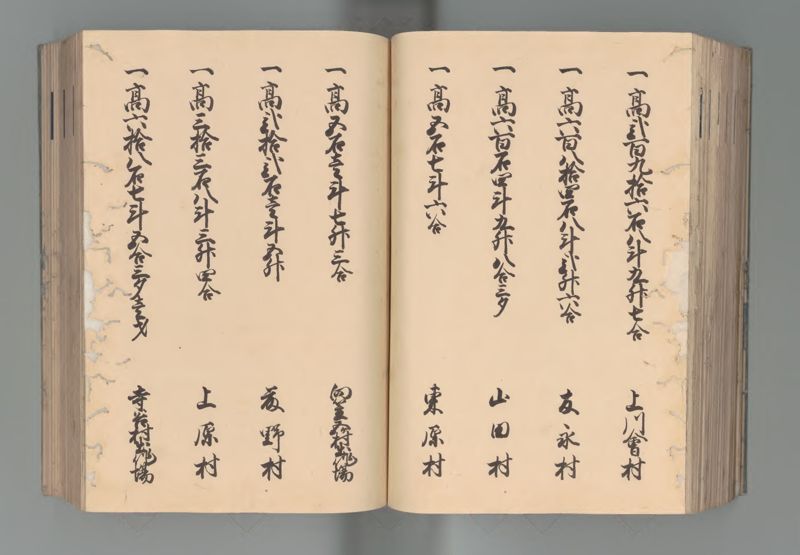 一高弐百九拾六石八斗九升七合 上川會村
一高六百八拾四石八斗弐升六合 友永村
一高六百石四斗九升八合三夕 山田村
一高五石七斗六合 東原村
一高五石壱斗七升三合
一高弐拾弐石壱斗五升 萩野村
一高三拾三石八斗三升四合 上原村
一高六拾八石七斗五合三夕壱才